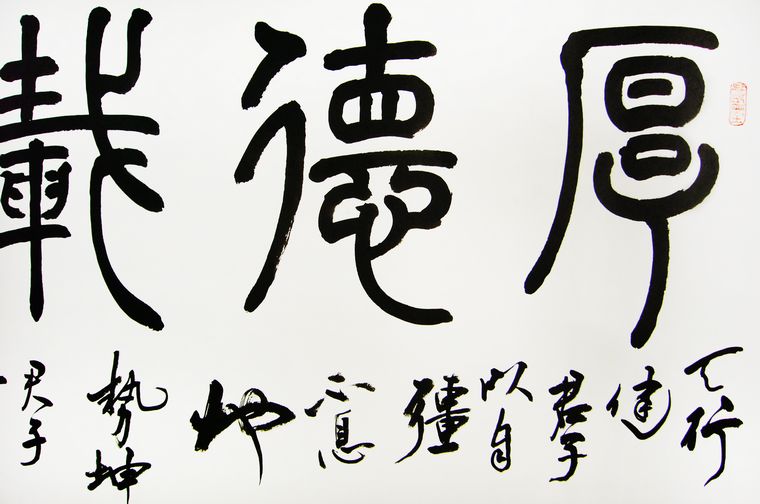 厚德載
天行
健
君子
以自
彊
不息
地
勢坤
君子